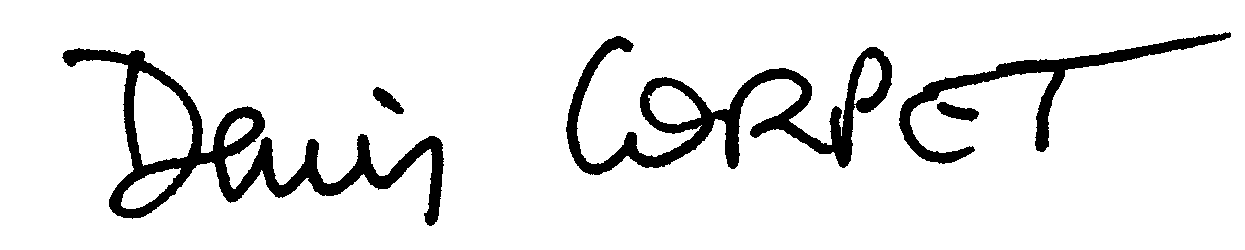 Denis CORPET